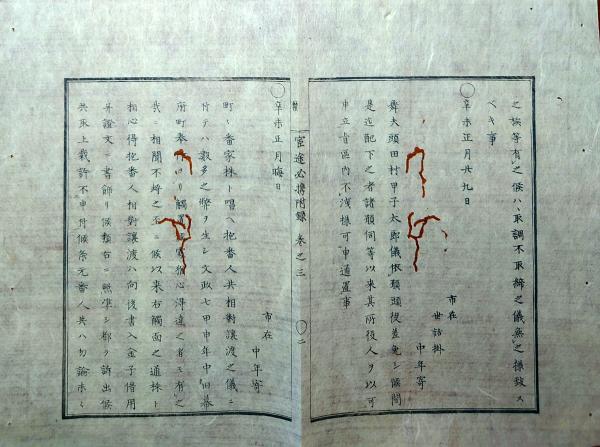 之族等有之候ハヽ取調不取締之儀無之様致ス
ベキ事
辛未正月廿九日
市在
世話掛
中年寄
舞太頭田村甲子太郎儀依願頭役差免シ候間
是迄配下之者諸願伺等以来其所役人ヲ以可
申立旨區内不洩様可申通置事
官途必携附録 巻之三 二
辛未正月晦日
市在
中年寄
町々番家株ト唱ヘ抱番人共相對讓渡之儀ニ
付テハ數多之弊ヲ生シ文政七甲申年中旧幕
府町奉行ヨリ觸置候處猶心得違之者モ有之
哉ニ相聞不埒之至ニ候以来右觸面之通株ト
相心得抱番人相對讓渡ハ向後書入金子借用
共取上裁許不申付候条元番人共ハ勿論末々